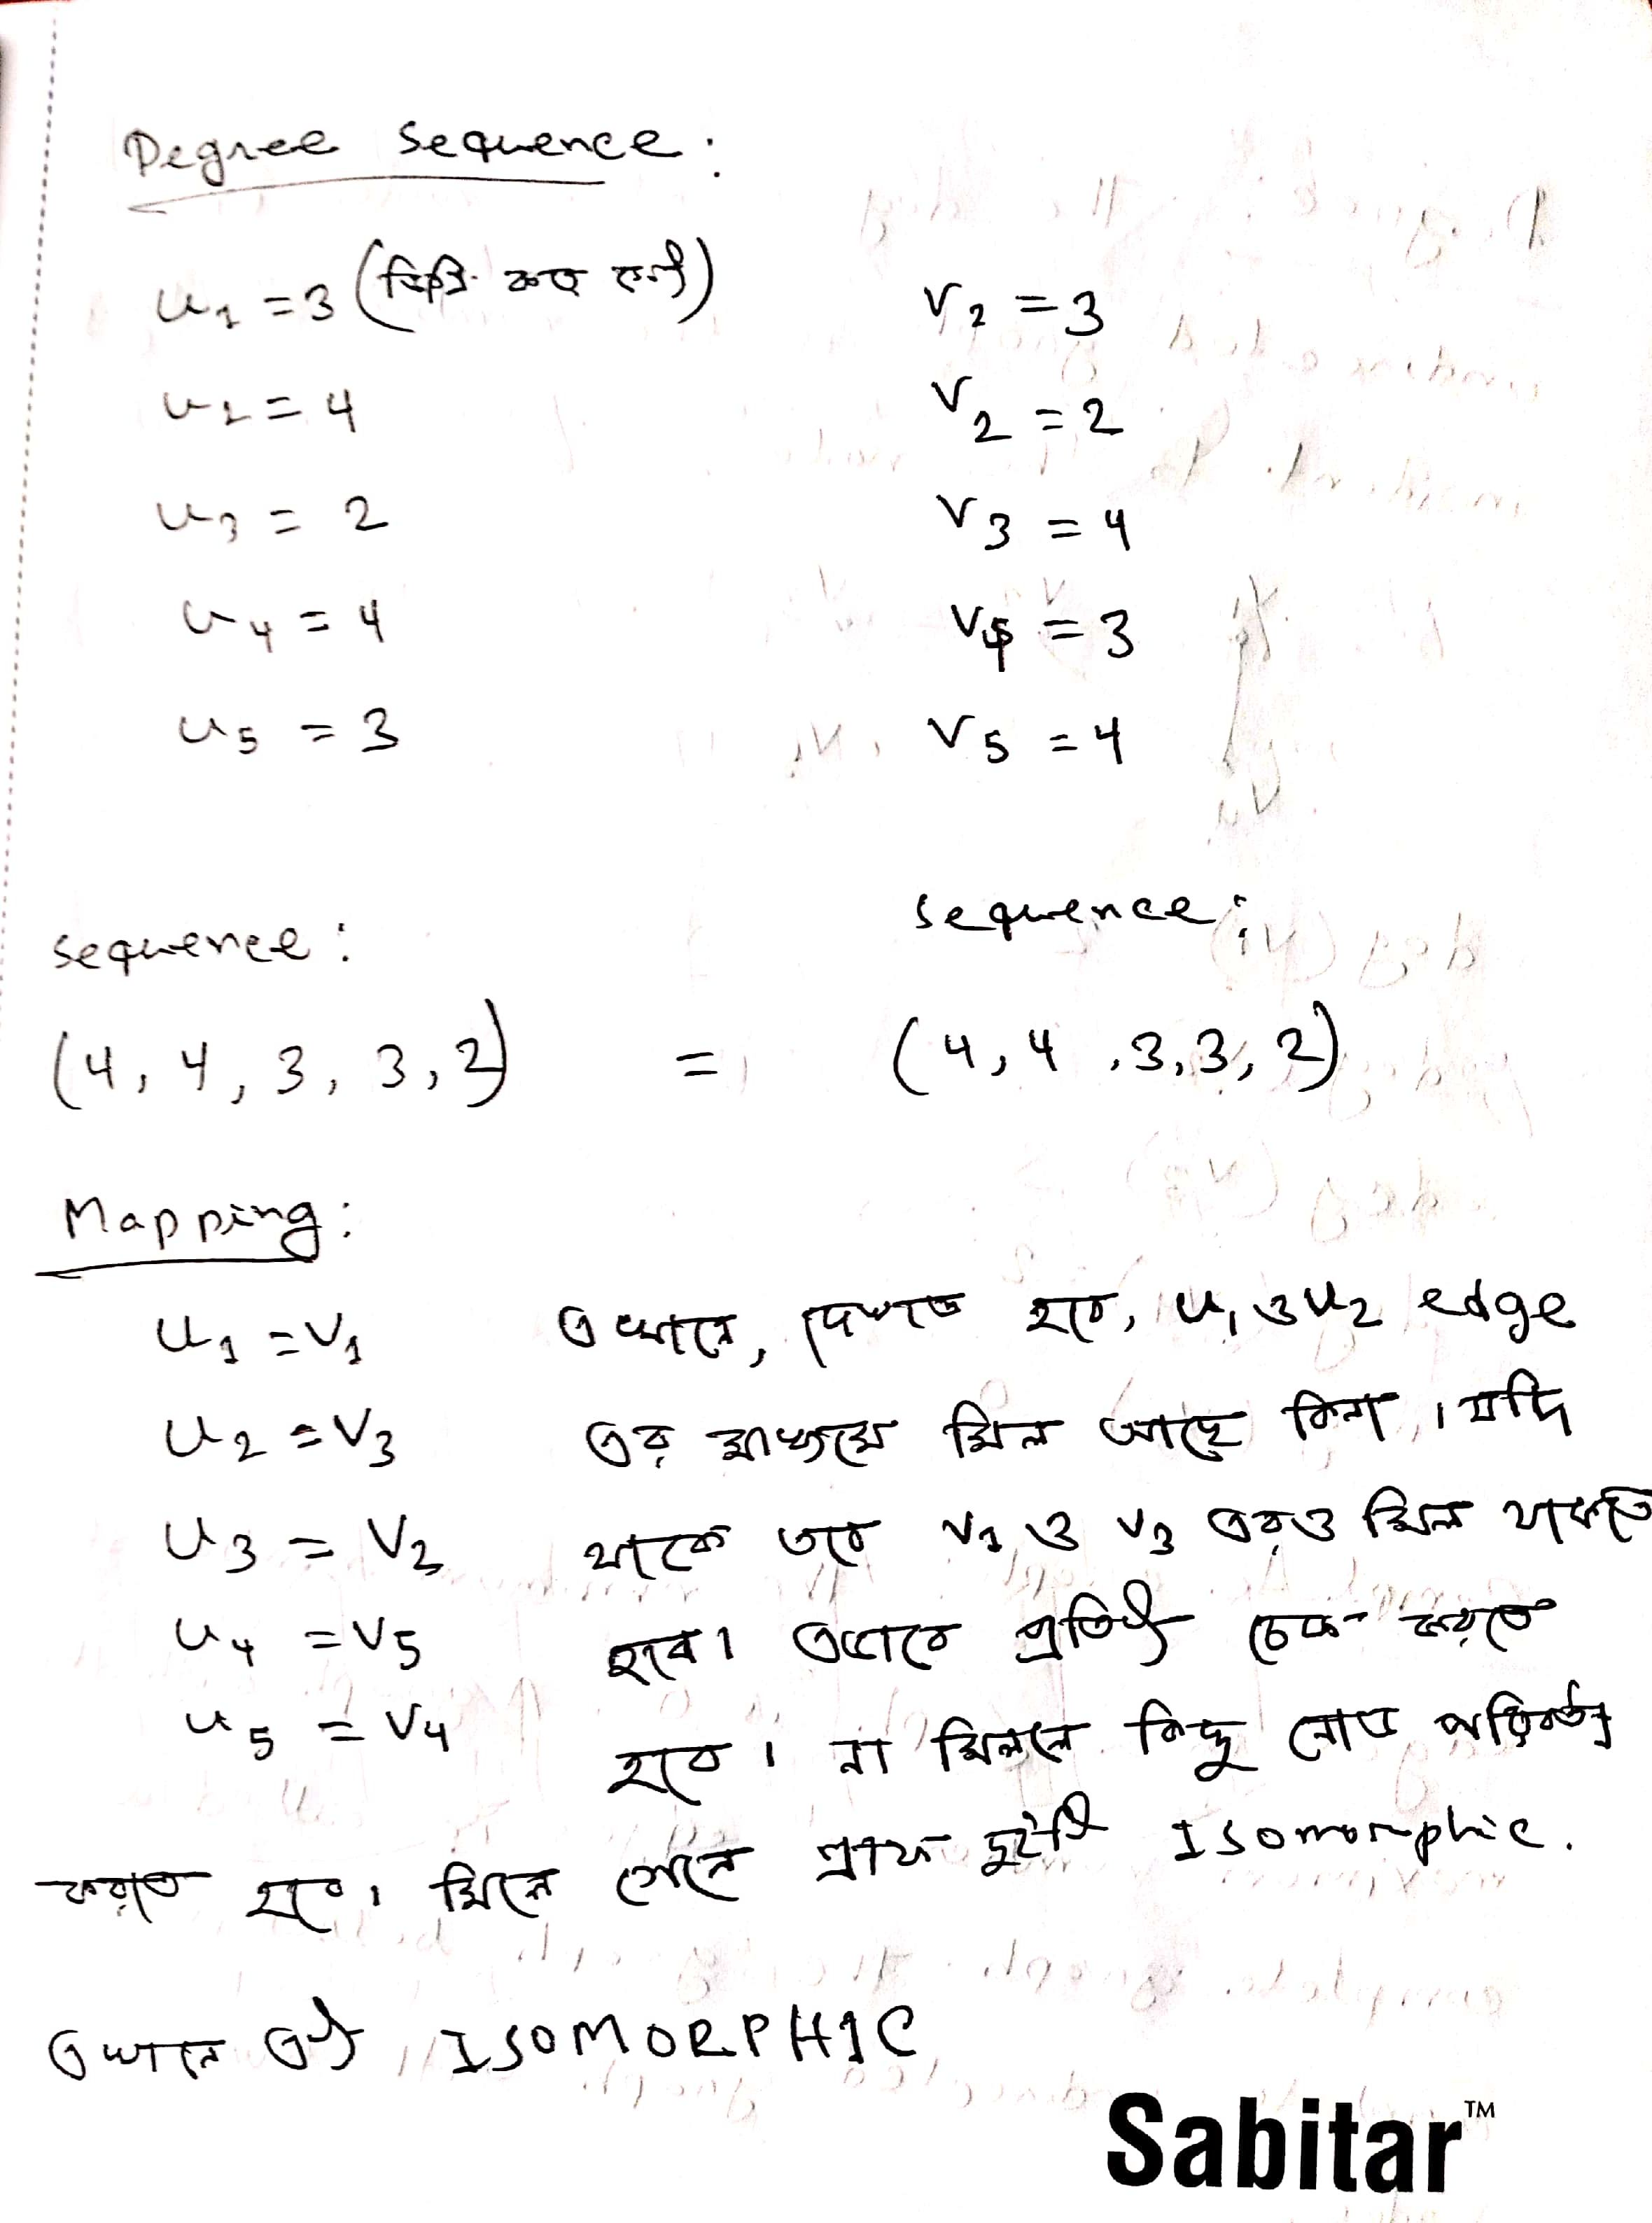 Degree Sequence:
u1 = 3 ( কত
v2 = 3
u2 = 4
v2 = 2
u3 = 2
v3 = 4
u4 = 4
v4 = 3
u5 = 3
v5 = 4
sequence:
sequence:
(4, 4, 3, 3, 2) = (4, 4, 3, 3, 2)
Mapping:
u1 = v1
u2 = v3
u3 = v2
u4 = v5
u5 = v4
এখানে, দেখতে হবে, u1 ও u2 edge
এর মাধ্যমে মিল আছে কিনা। যদি
থাকে তবে v1 ও v3 এরও মিল থাকতে
হবে। এভাবে প্রতিটি চেক করতে
হবে। না মিললে কিছু নোড পরিবর্তন
করতে হবে। মিলে গেলে গ্রাফ দুইটি Isomorphic.
এখানে এটি ISOMORPHIC
Sabitar™